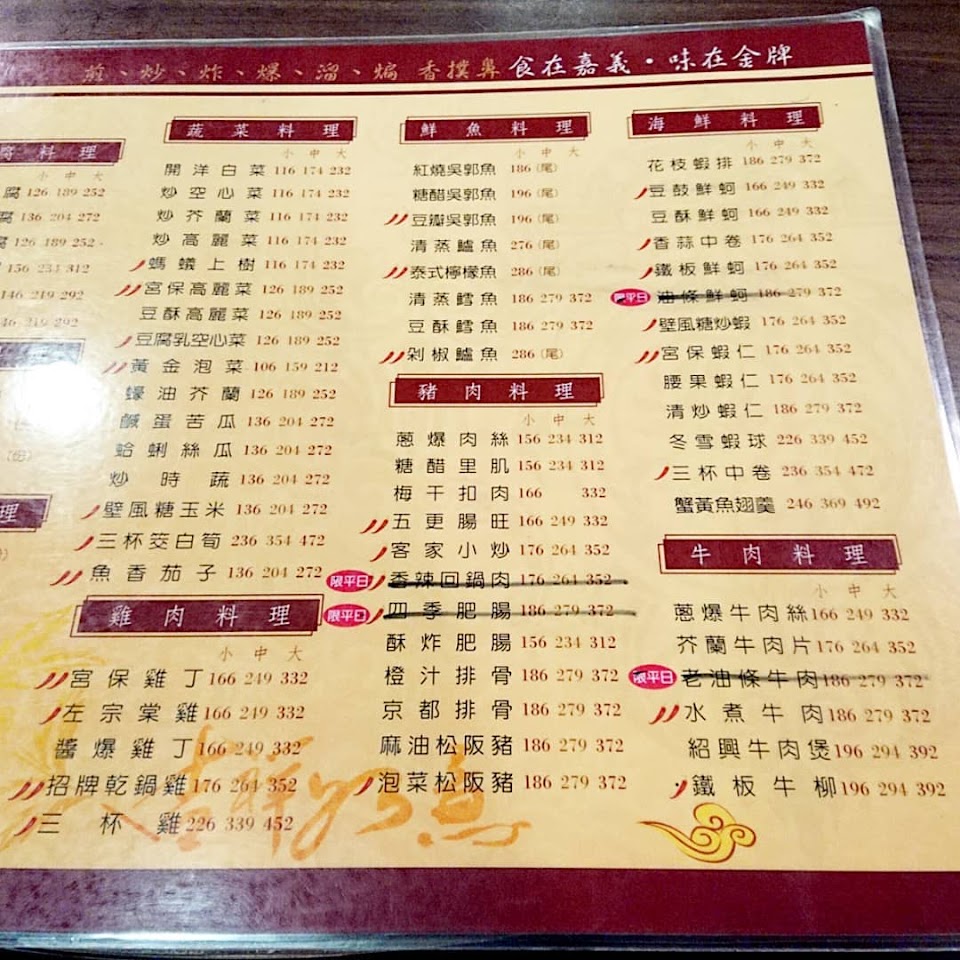 煎、炒、炸、爆、溜、煸 香撲鼻 食在嘉義・味在金牌
腐料理
小 中 大
腐 126 189 252
腐 136 204 272
腐 126 189 252
156 234 312
146 219 292
146 219 292
理
蔬菜料理
小 中 大
開洋白菜 116 174 232
炒空心菜 116 174 232
炒芥蘭菜 116 174 232
炒高麗菜 116 174 232
螞蟻上樹 116 174 232
宮保高麗菜 126 189 252
豆酥高麗菜 126 189 252
豆腐乳空心菜 126 189 252
黃金泡菜 106 159 212
蠔油芥蘭 126 189 252
鹹蛋苦瓜 136 204 272
蛤蜊絲瓜 136 204 272
炒時蔬 136 204 272
壁風糖玉米 136 204 272
三杯筊白筍 236 354 472
魚香茄子 136 204 272
雞肉料理
小 中 大
宮保雞丁 166 249 332
左宗棠雞 166 249 332
醬爆雞丁 166 249 332
招牌乾鍋雞 176 264 352
三杯雞 226 339 452
鮮魚料理
小 中 大
紅燒吳郭魚 186 (尾)
糖醋吳郭魚 196 (尾)
豆瓣吳郭魚 196 (尾)
清蒸鱸魚 276 (尾)
泰式檸檬魚 286 (尾)
清蒸鱈魚 186 279 372
豆酥鱈魚 186 279 372
剁椒鱸魚 286 (尾)
豬肉料理
小 中 大
蔥爆肉絲 156 234 312
糖醋里肌 156 234 312
梅干扣肉 166 332
五更腸旺 166 249 332
客家小炒 176 264 352
限平日 香辣回鍋肉 176 264 352
限平日 四季肥腸 186 279 372
酥炸肥腸 156 234 312
橙汁排骨 186 279 372
京都排骨 186 279 372
麻油松阪豬 186 279 372
泡菜松阪豬 186 279 372
海鮮料理
小 中 大
花枝蝦排 186 279 372
豆鼓鮮蚵 166 249 332
豆酥鮮蚵 166 249 332
香蒜中卷 176 264 352
鐵板鮮蚵 176 264 352
限平日 油條鮮蚵 186 279 372
壁風糖炒蝦 176 264 352
宮保蝦仁 176 264 352
腰果蝦仁 176 264 352
清炒蝦仁 186 279 372
冬雪蝦球 226 339 452
三杯中卷 236 354 472
蟹黃魚翅羹 246 369 492
牛肉料理
小 中 大
蔥爆牛肉絲 166 249 332
芥蘭牛肉片 176 264 352
限平日 老油條牛肉 186 279 372
水煮牛肉 186 279 372
紹興牛肉煲 196 294 392
鐵板牛柳 196 294 392
吉祥如意